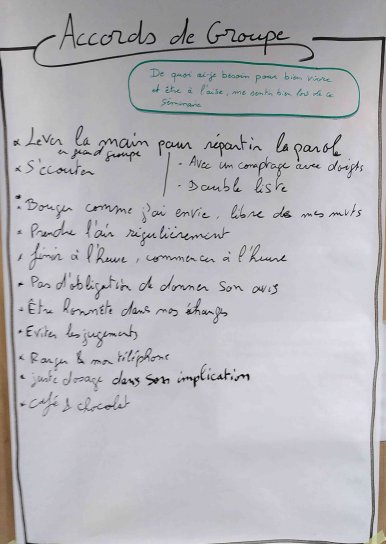 Accords de Groupe
De quoi ai-je besoin pour bien vivre
et être à l'aise, me sentir bien lors de ce
Séminaire
* Lever la main pour répartir la parole
en grand groupe
* S'écouter
- Avec un comptage avec doigts
- Double liste
* Bouger comme j'ai envie, libre de mes mvts
* Prendre l'air régulièrement
* finir à l'heure, commencer à l'heure
* Pas d'obligation de donner son avis
* Être honnête dans nos échanges
* Eviter les jugements
* Ranger mon téléphone
* juste dosage dans son implication
* café & chocolat